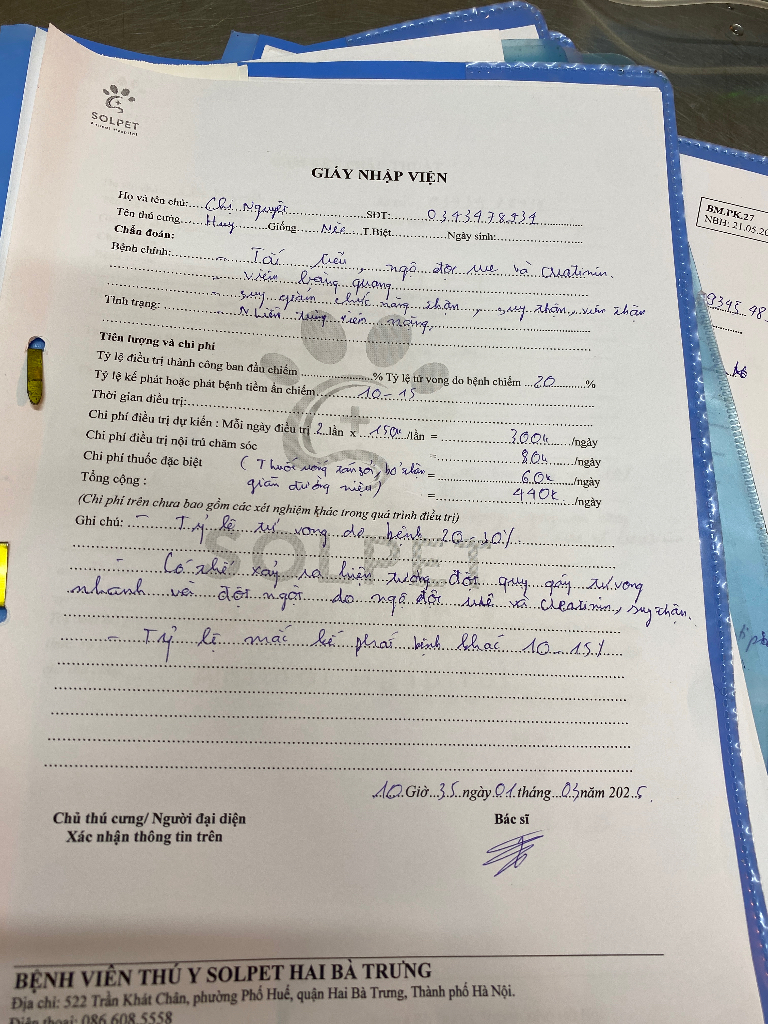 SOLPET
Animal Hospital
GIẤY NHẬP VIỆN
BM.PK.27
NBH: 21.05.20
Họ và tên chủ: Chị Nguyệt SĐT: 0343478434
Tên thú cưng Huy Giống Mèo T.Biệt Ngày sinh:
Chẩn đoán:
Bệnh chính: - Tắc tiểu, ngộ độc ure và Creatinin.
- Viêm bàng quang
- suy giảm chức năng thận, suy thận, viêm thận
Tình trạng:
Tiên lượng và chi phí
Tỷ lệ điều trị thành công ban đầu chiếm % Tỷ lệ tử vong do bệnh chiếm 20 %
Tỷ lệ kế phát hoặc phát bệnh tiềm ẩn chiếm 10-15
Thời gian điều trị:
Chi phí điều trị dự kiến : Mỗi ngày điều trị 2 lần x 150k /lần = 300k /ngày
Chi phí điều trị nội trú chăm sóc = 80k /ngày
Chi phí thuốc đặc biệt (Thuốc uống tan sỏi, bổ thận = 60k /ngày
giãn đường niệu)
Tổng cộng : = 440k /ngày
(Chi phí trên chưa bao gồm các xét nghiệm khác trong quá trình điều trị)
Ghi chú: - Tỷ lệ tử vong do bệnh 20-30%
- Có thể xảy ra hiện tượng đột quỵ gây tử vong
nhanh và đột ngột do ngộ độc urê và Creatinin, suy thận.
- Tỷ lệ mắc kế phát bệnh khác 10-15%
SOLPET
10 Giờ 35 ngày 01 tháng 03 năm 2025
Chủ thú cưng/ Người đại diện
Xác nhận thông tin trên
Bác sĩ
BỆNH VIÊN THÚ Y SOLPET HAI BÀ TRƯNG
Địa chỉ: 522 Trần Khát Chân, phường Phố Huế, quận Hai Bà Trưng, Thành phố Hà Nội.
Điện thoại: 086.608.5558